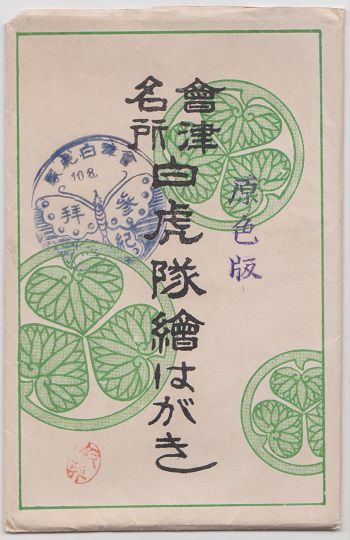 會津
名所
白虎隊繪はがき
原色版
會津白虎隊
10.8.
參拜紀念